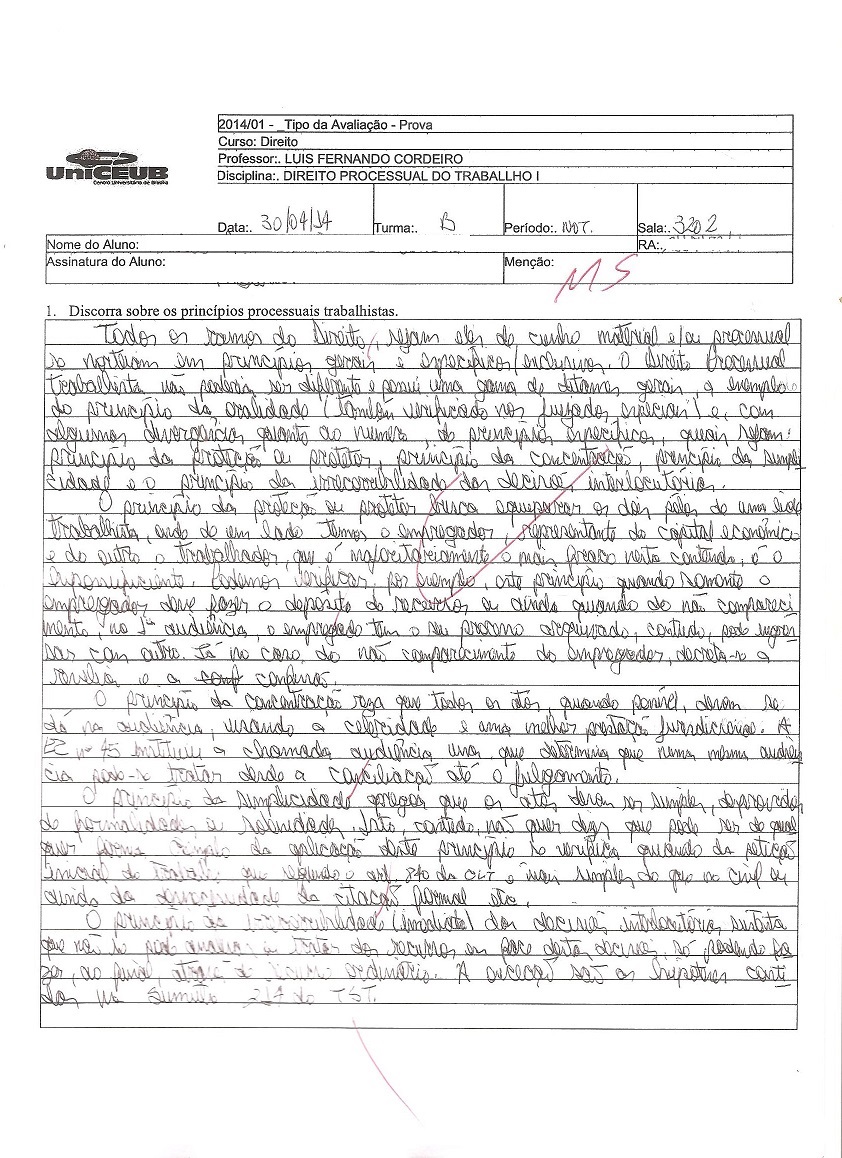 2014/01 - _Tipo da Avaliação - Prova
Curso: Direito
Professor:. LUIS FERNANDO CORDEIRO
Disciplina:. DIREITO PROCESSUAL DO TRABALLHO I
UniCEUB
Centro Universitário de Brasília
Data:. 30/04/14 Turma:. B Período:. NOT. Sala:. 3202
Nome do Aluno: RA:.
Assinatura do Aluno: Menção: MS
1. Discorra sobre os princípios processuais trabalhistas.
Todos os ramos do Direito, sejam eles de cunho material e/ou processual
se norteiam em princípios gerais e específicos/exclusivos. O Direito Processual
trabalhista não poderia ser diferente e possui uma gama de ditames gerais, a exemplo
do princípio da oralidade (também verificado nos juizados especiais) e, com
algumas divergências quanto ao número, de princípios específicos, quais sejam:
princípio da proteção ou protetor, princípio da concentração, princípio da simpli
cidade e o princípio da irrecorribilidade das decisões interlocutórias.
O princípio da proteção ou protetor busca equiparar os dois polos de uma lide
trabalhista, onde de um lado temos o empregador, representante do capital econômico
e do outro o trabalhador, que é majoritariamente o mais fraco nesta contenda, é o
hipossuficiente. Podemos verificar, por exemplo, este princípio quando somente o
empregador deve fazer o depósito do recurso ou ainda quando do não compareci
mento, na 1ª audiência, o empregado tem o seu processo arquivado, contudo, pode ingres
sar com outro. Já no caso do não comparecimento do empregador, decreta-se a
revelia e a conf confissão.
O princípio da concentração reza que todos os atos, quando possível, devem se
dá na audiência, visando a celeridade e uma melhor prestação jurisdicional. A
EC nº 45 instituiu a chamada audiência una que determina que numa mesma audiên
cia pode-se tratar desde a conciliação até o julgamento.
O princípio da simplicidade prega que os atos devem ser simples, desprovidos
de formalidades e solenidades. Isto, contudo, não quer dizer que pode ser de qual
quer forma. da aplicação deste princípio se verifica quando da petição
inicial do trabalho que segundo o art. 840 da CLT é mais simples do que no civil ou
ainda da da citação formal etc.
O princípio da irrecorribilidade (imediata) das decisões interlocutórias
que não se pode dos recursos em face destas decisões, só podendo fa
zer, ao final, recurso ordinário. A exceção são as hipóteses conti
das na Súmula 214 do TST.